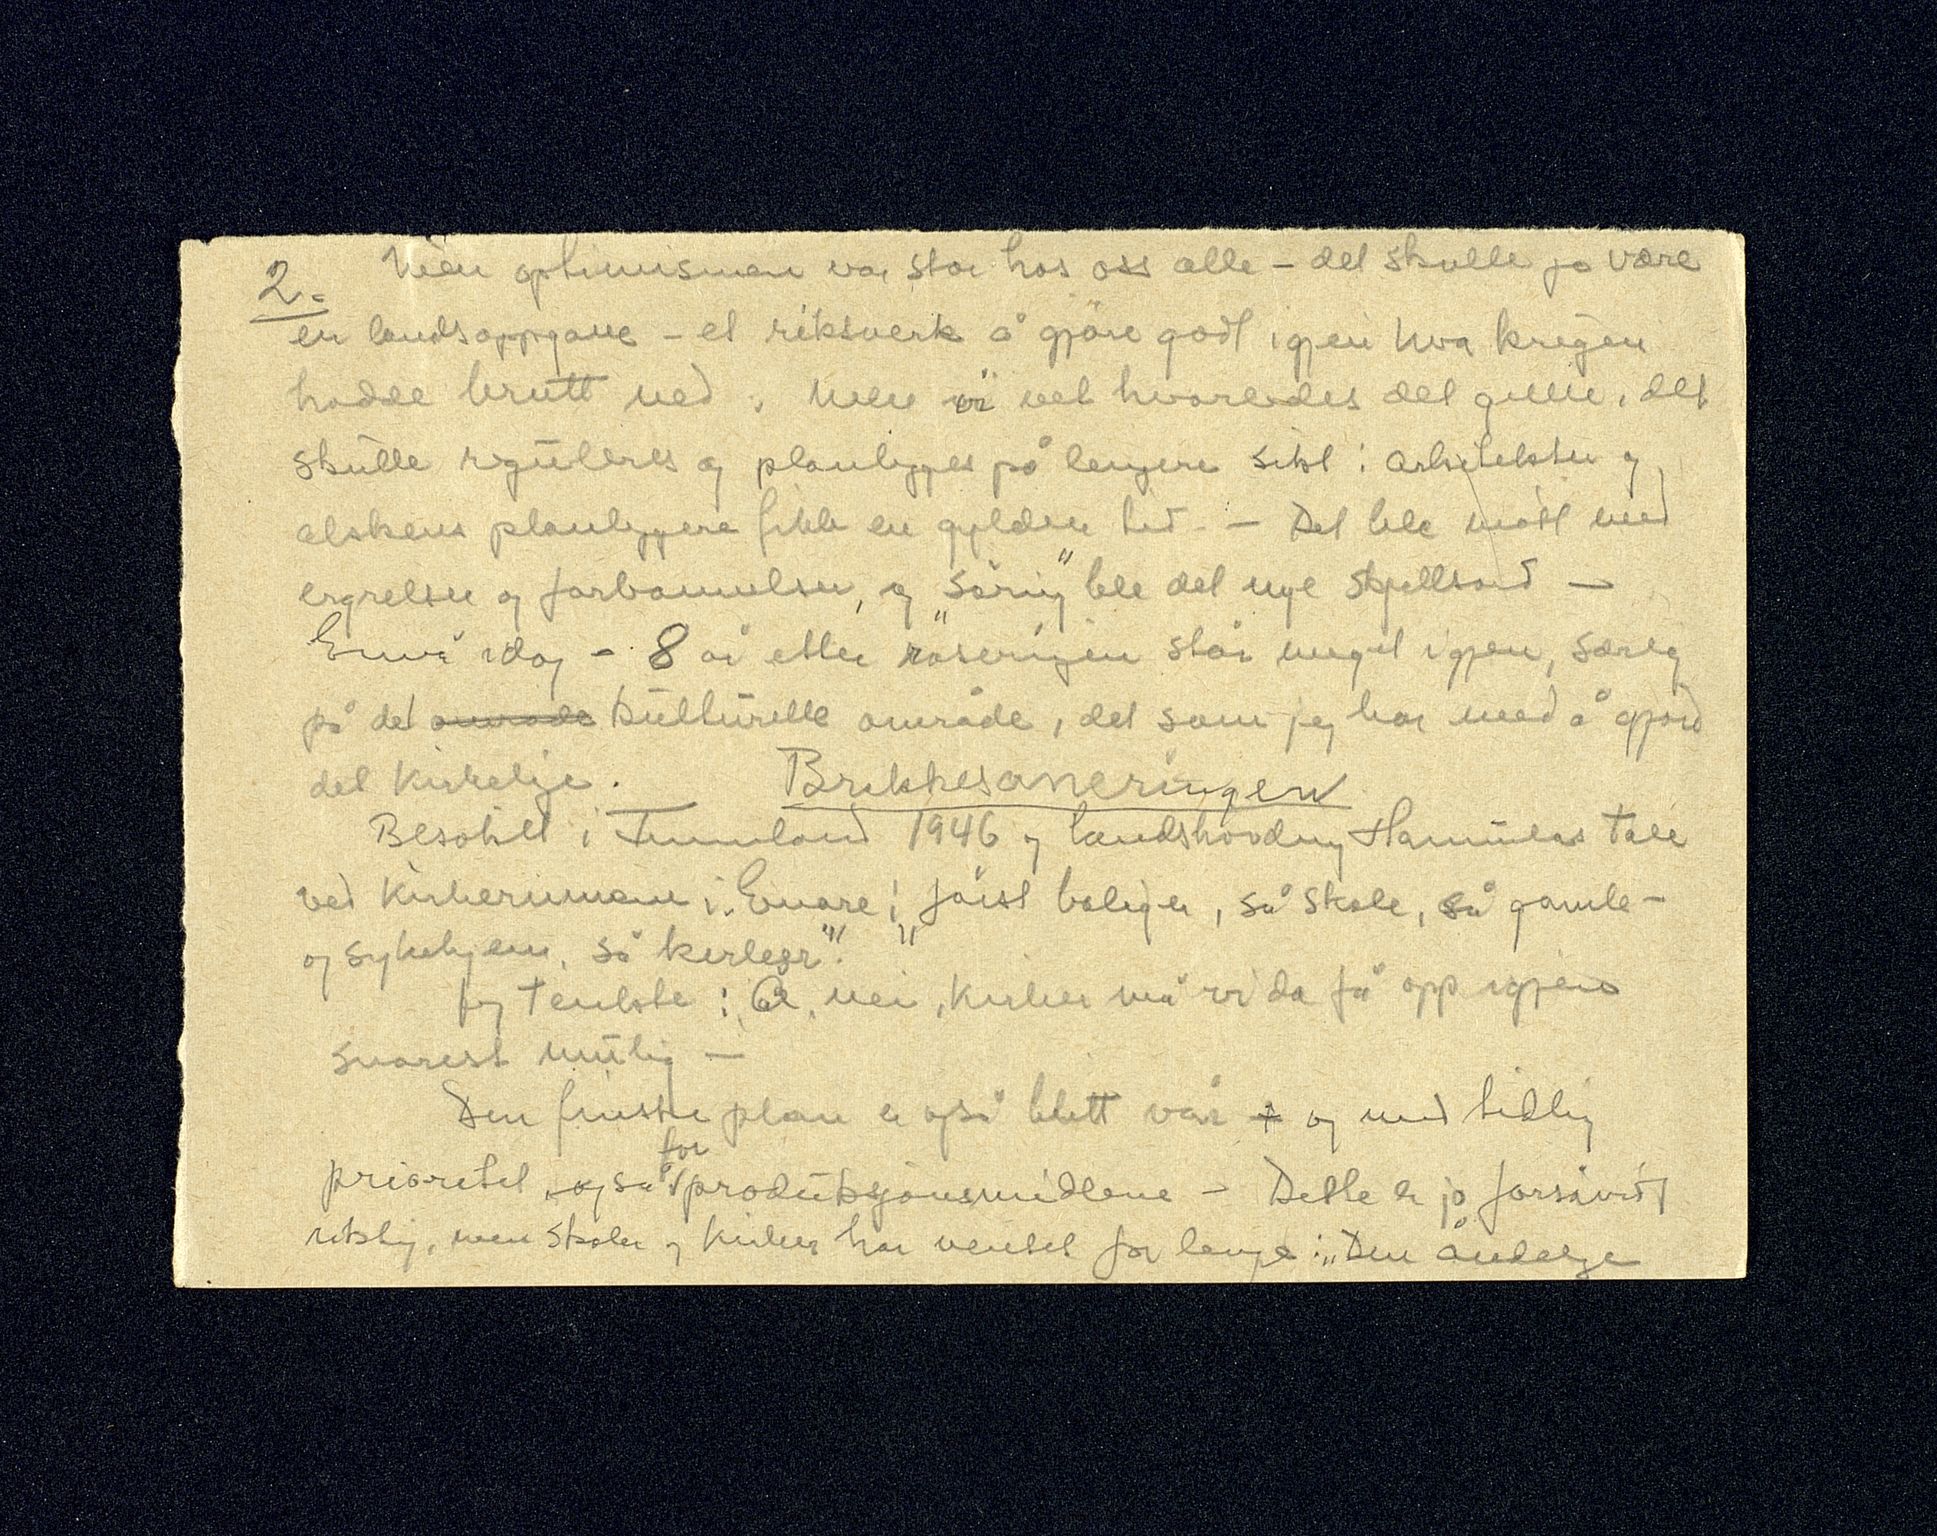 2. Men optimismen var stor hos oss alle – det skulle jo være
en landsoppgave – et riksverk å gjøre godt igjen hva krigen
hadde brutt ned. Men vi vet hvorledes det gikk, det
skulle reguleres og planlegges på lengere sikt: arkitekter og
alskens planleggere fikk en gylden tid. – Det ble møtt med
ergrelser og forbannelser, og „søring" ble det nye skjellsord –
Ennå idag – 8 år etter raseringen står meget igjen, særlig
på det område kulturelle område, det som jeg har med å gjøre
det kirkelige. Brakkesaneringen
Besøket i Finnland 1946 og landshövding Hannulas tale
ved kirkeruinene i Enare: „først boliger, så skole, så gamle-
og sykehjem, så kirker"!
Jeg tenkte: Å, nei, kirker må vi da få opp igjen
snarest mulig –
Den finske plan er også blitt vår og med tidlig
prioritet, også for produksjonsmidlene – Dette er jo forsåvidt
riktig, men skoler og kirker har ventet for lenge: „Den åndelige